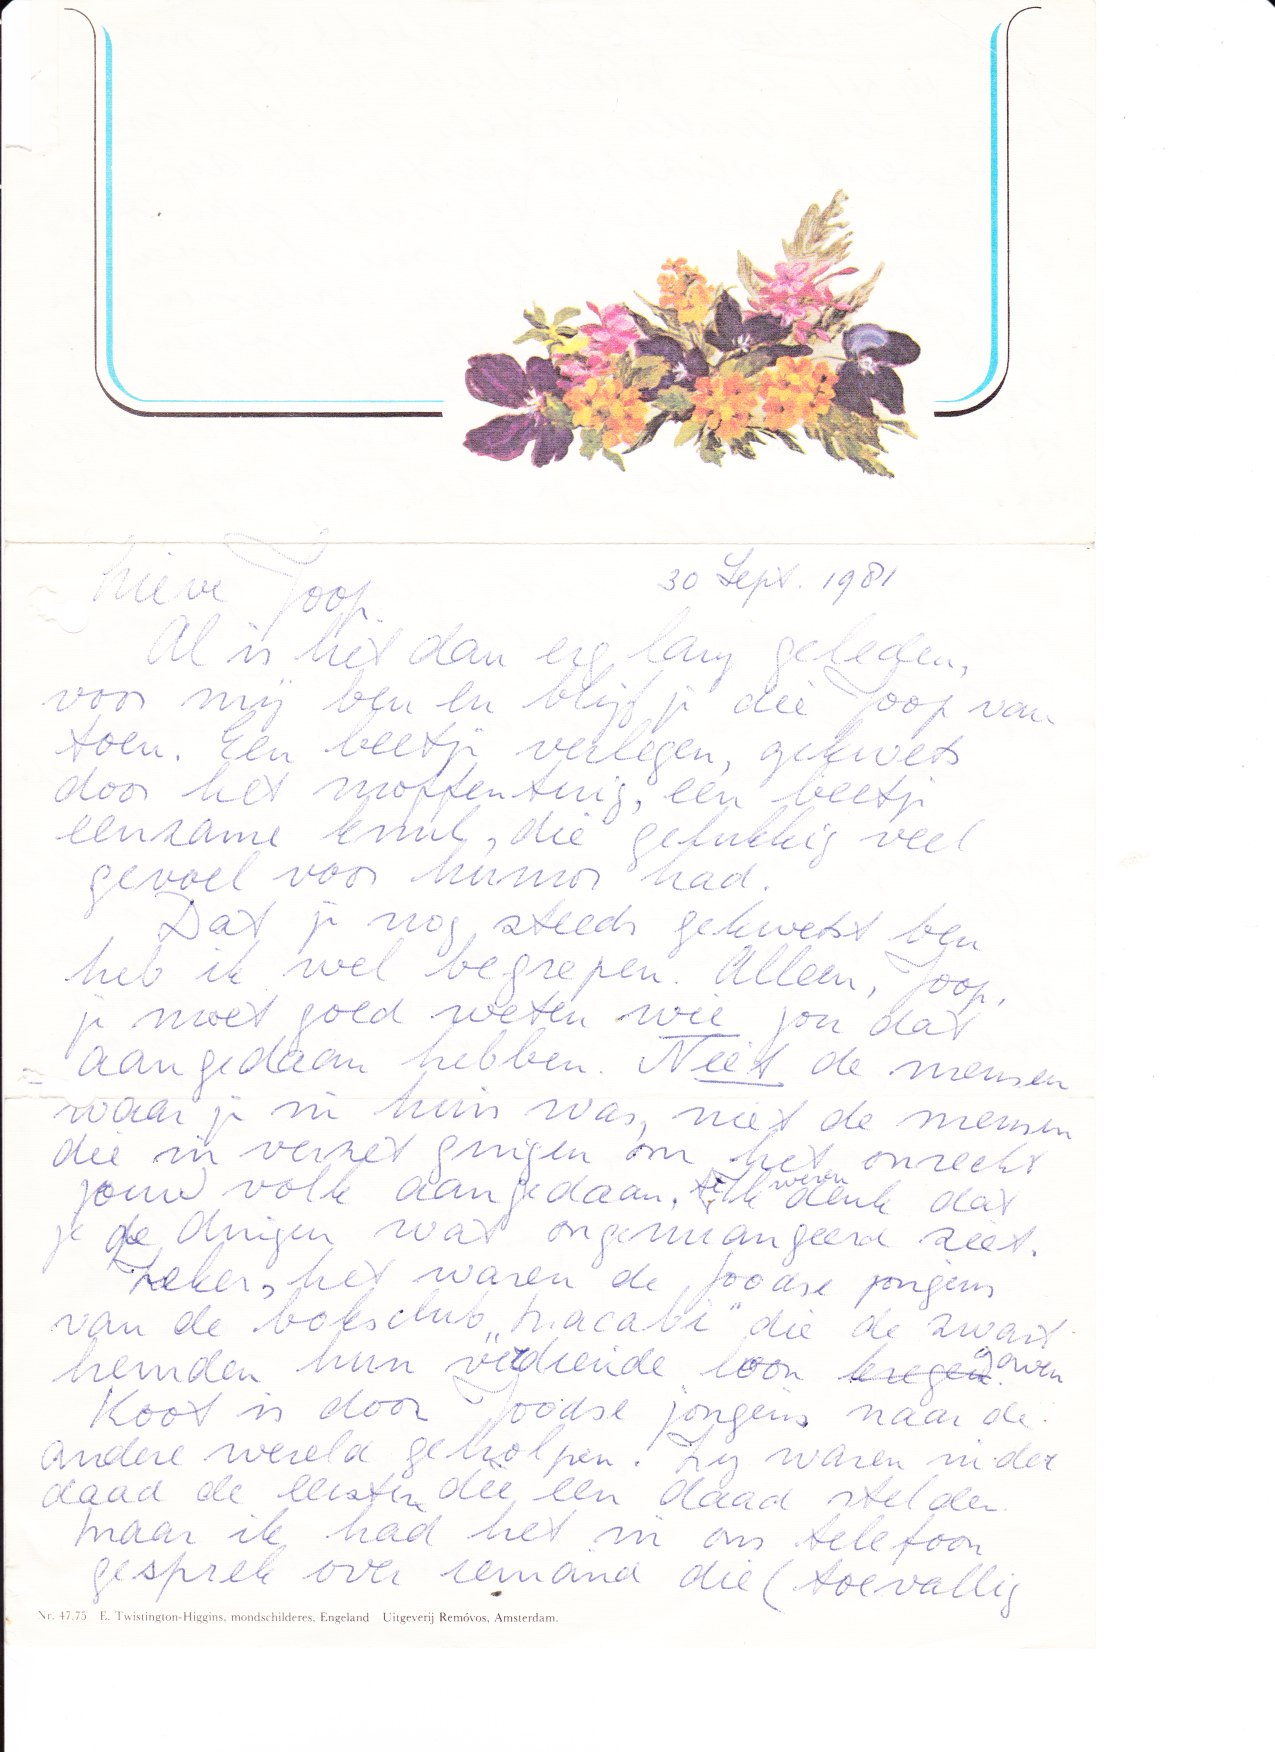 Lieve Joop
30 Sept. 1981
Al is het dan erg lang geleden,
voor mij ben en blijf je die Joop van
toen. Een beetje verlegen, gekwets
door het moffentuig, een beetje
eenzame knul, die gelukkig veel
gevoel voor humor had.
Dat je nog steeds gekwetst ben
heb ik wel begrepen. Alleen, Joop,
je moet goed weten wie jou dat
aangedaan hebben. Niet de mensen
waar je in huis was, niet de mensen
die in verzet gingen om het onrecht
jouw volk aangedaan. Ik denk dat
je de dingen wat ongenuangeerd ziet.
Zeker, het waren de Joodse jongens
van de boksclub „Macabi" die de zwart
hemden hun verdiende loon kregen. gaven
Koot is door Joodse jongens naar de
andere wereld geholpen. Zij waren inder
daad de eersten die een daad stelden.
Maar ik had het in ons telefoon
gesprek over iemand die (toevallig
Nr. 47.75 E. Twistington-Higgins, mondschilderes, Engeland Uitgeverij Removos, Amsterdam.